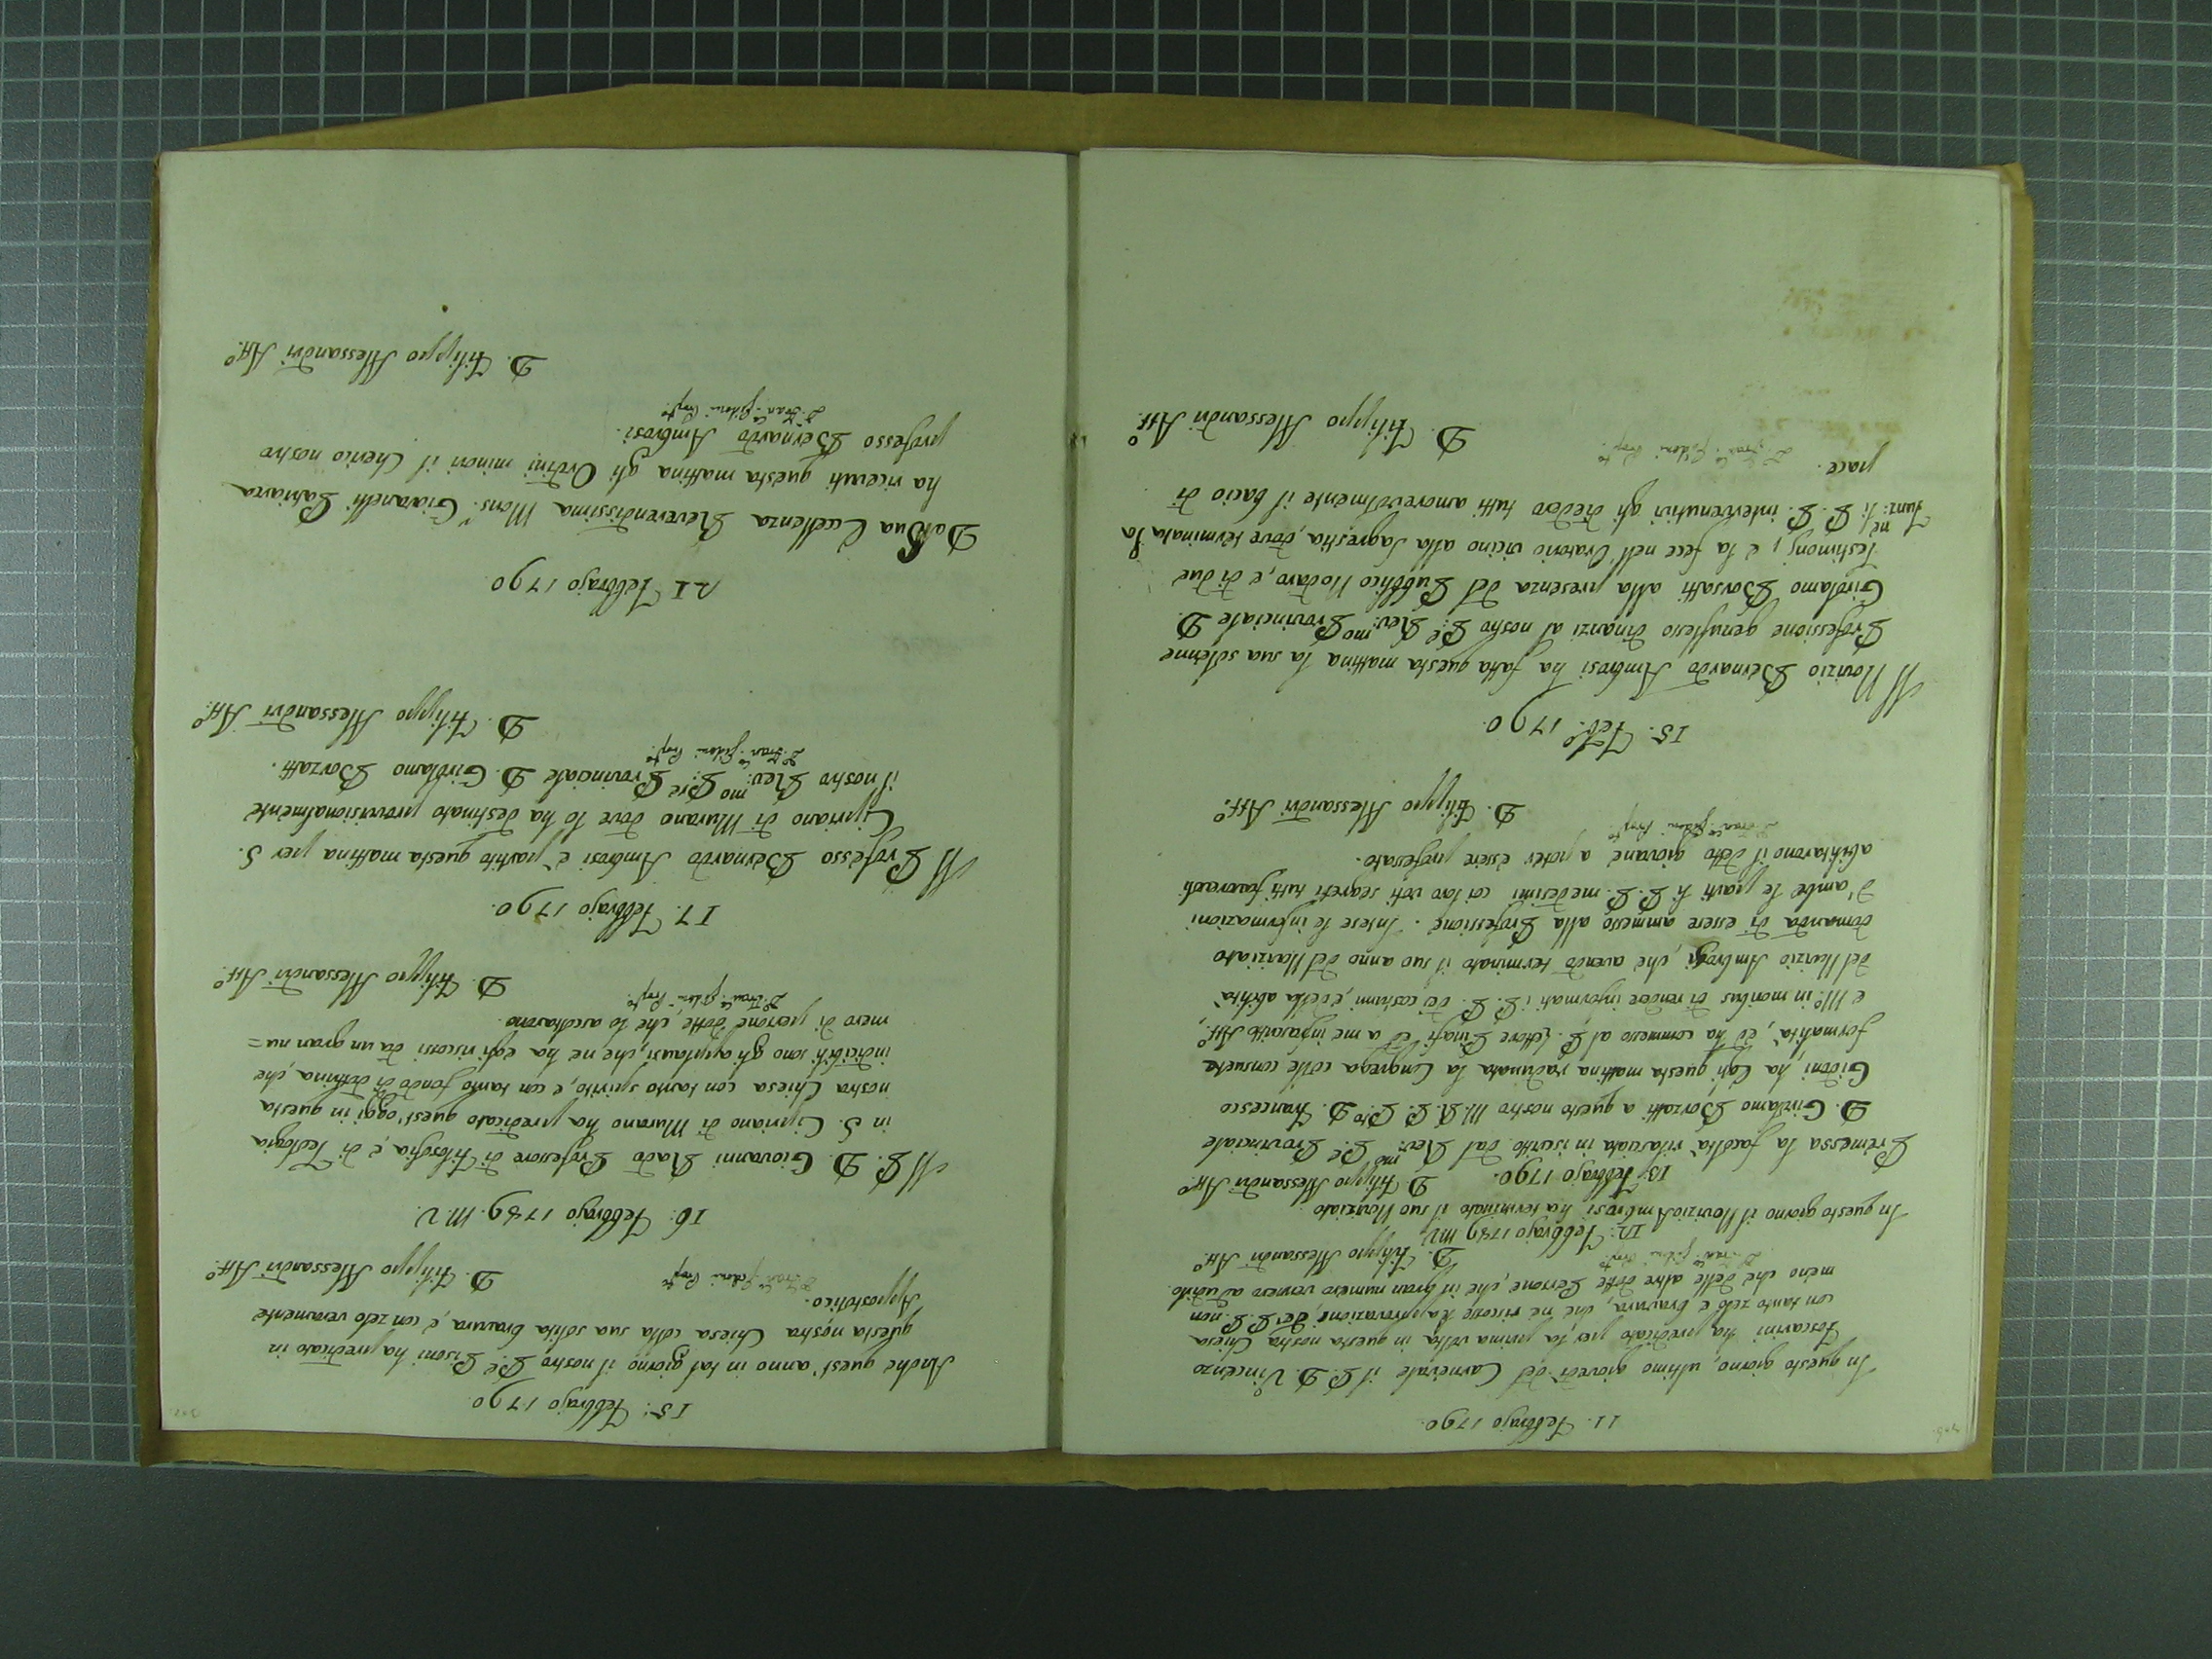 306.
11. Febbrajo 1790.
In questo giorno, ultimo giovedì del Carnevale il P. D. Vincenzo
Foscarini ha predicato per la prima volta in questa nostra Chiesa
con tanto zelo e bravura, che ne riscosse l'approvazione, dei P.P. non
meno che delle altre dotte Persone, che in gran numero vennero ad udirlo.
D. Fran.co Gidoni Prep.to
D. Filippo Alessandri Att.o
12: Febbrajo 1789 M.V.
In questo giorno il Novizio Ambrosi ha terminato il suo Noviziato
D. Filippo Alessandri Att.o
13: Febbrajo 1790.
Premessa la facoltà rilasciata in iscritto dal Rev:mo P.e Provinciale
D. Girolamo Borzatti a questo nostro M. R. P. P.to D. Francesco
Gidoni, ha Egli questa mattina radunata la Congrega colle consuete
formalità, ed ha commesso al P. Lettore Pinati ed a me infrascritto Att.o,
e M.o in moribus di render informati i P. P. dei costumi, e della abilità
del Novizio Ambrogi, che avendo terminato il suo anno del Noviziato
domanda di essere ammesso alla Professione. Intese le informazioni
d'ambe le parti li P. P. medesimi coi loro voti segreti tutti favorevoli
abilitarono il detto giovane a poter essere professato.
D. Fran.co Gidoni Prep.to
D. Filippo Alessandri Att.o
15. Feb.o 1790.
Il Novizio Bernardo Ambrosi ha fatta questa mattina la sua solenne
Professione genuflesso dinanzi al nostro P.e Rev:mo Provinciale D.
Girolamo Borsatti alla presenza del Pubblico Nodaro, e di due
Testimonj; e la fece nell'Oratorio vicino alla Sagrestia, dove terminata la
Funz:ne li P. P. intervenutivi gli diedero tutti amorevolmente il bacio di
pace.
D. Fran.co Gidoni Prep.to
D. Filippo Alessandri Att.o
15: Febbrajo 1790.
Anche quest'anno in tal giorno il nostro P.e Pisoni ha predicato in
questa nostra Chiesa colla sua solita bravura, e con zelo veramente
Appostolico.
D. Fran.co Gidoni Prep.to
D. Filippo Alessandri Att.o
16. Febbrajo 1789. M.V.
Il P. D. Giovanni Rado Professore di Filosofia, e di Teologia
in S. Cipriano di Murano ha predicato quest'oggi in questa
nostra Chiesa con tanto spirito, e con tanto fondo di dottrina, che
indicibili sono gli applausi, che ne ha egli riscossi da un gran nu=
mero di persone dotte, che lo ascoltarono.
D. Fran.co Gidoni Prep.to
D. Filippo Alessandri Att.o
17. Febbrajo 1790.
Il Professo Bernardo Ambrosi è partito questa mattina per S.
Cipriano di Murano dove lo ha destinato provvisionalmente
il nostro Rev:mo P.re Provinciale D. Girolamo Borzatti.
D. Fran.co Gidoni Prep.to
D. Filippo Alessandri Att.o
21 Febbrajo 1790
Da Sua Eccellenza Reverendissima Mons.r Giovanelli Patriarca
ha ricevuti questa mattina gli Ordini minori il Cherico nostro
professo Bernardo Ambrosi.
D. Fran.co Gidoni Prep.to
D. Filippo Alessandri Att.o